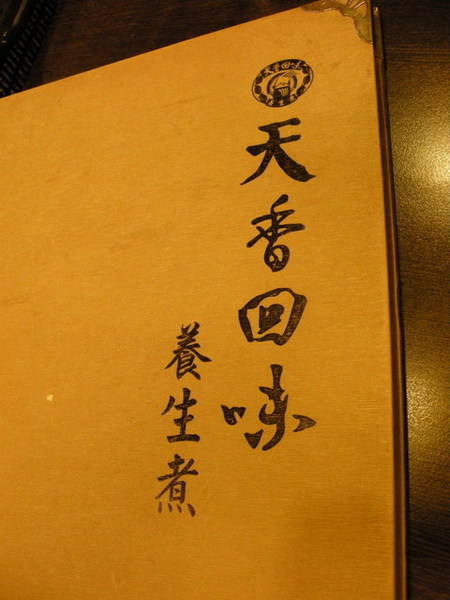 天香回味
養生煮